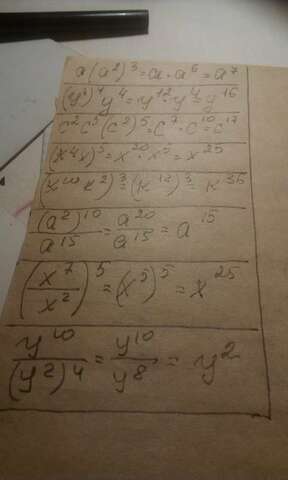 a(a²)³=a·a⁶=a⁷
(y³)⁴y⁴=y¹²·y⁴=y¹⁶
c²c⁵(c²)⁵=c⁷·c¹⁰=c¹⁷
(x⁴x)⁵=x²⁰·x⁵=x²⁵
(x¹⁰x²)³=(x¹²)³=x³⁶
(a²)¹⁰/a¹⁵=a²⁰/a¹⁵=a¹⁵
(x⁷/x²)⁵=(x⁵)⁵=x²⁵
y¹⁰/(y²)⁴=y¹⁰/y⁸=y²